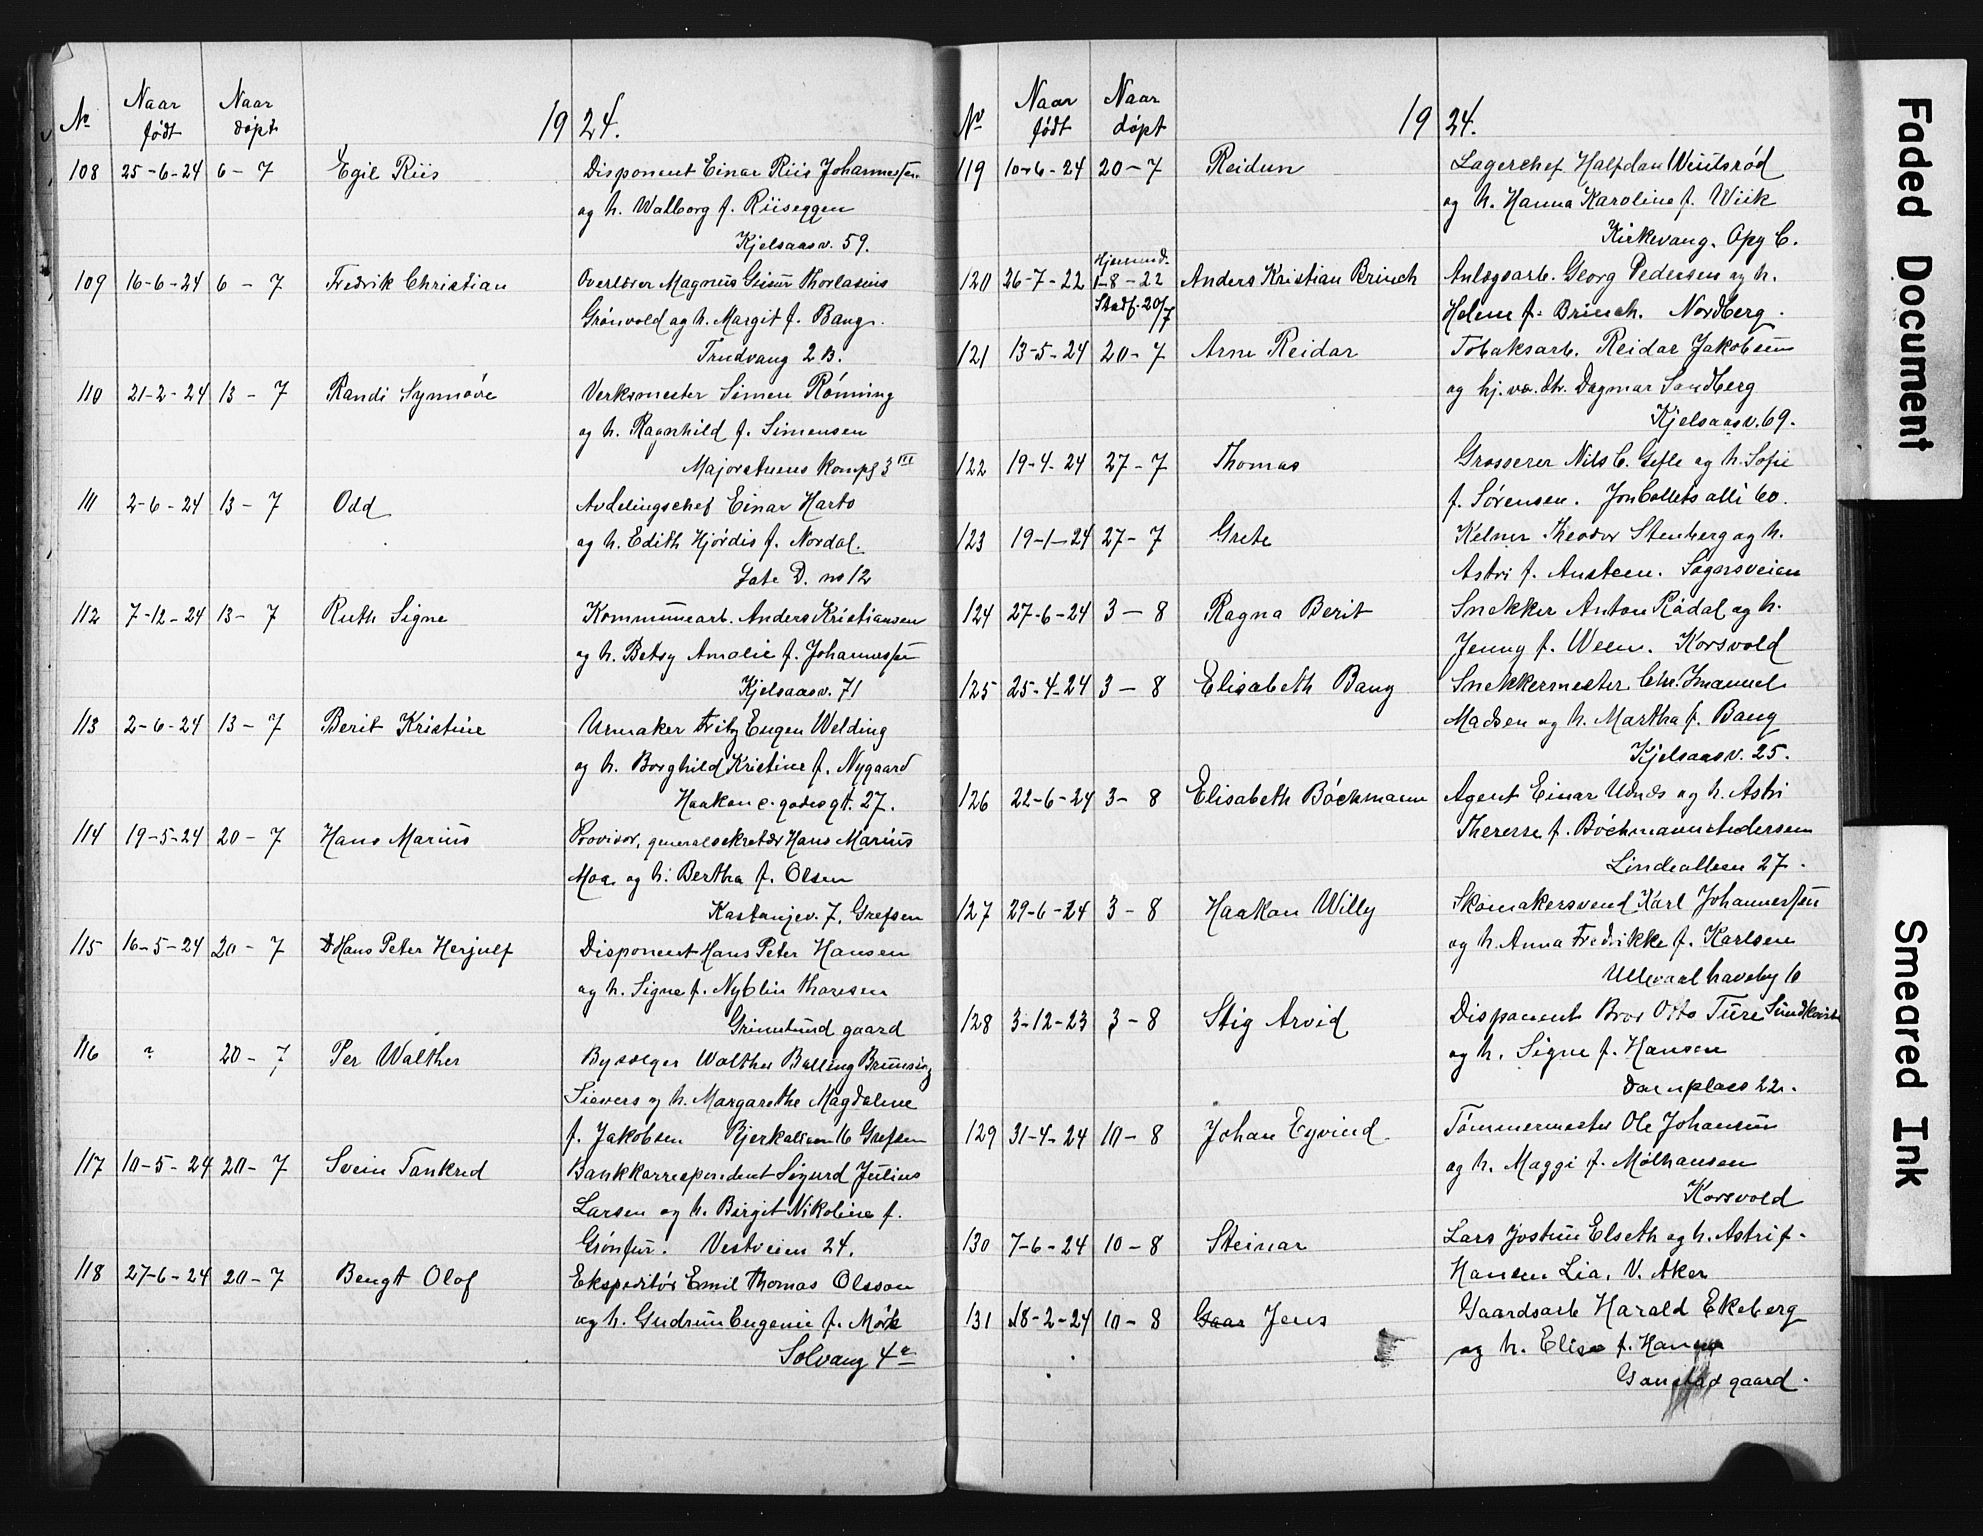 No Naar født Naar døpt 19 24.
108 25-6-24 6-7 Egil Riis Disponent Einar Riis Johannessen
og h. Walborg f. Riiseggen
Kjelsaasv. 59.
109 16-6-24 6-7 Fredrik Christian Overlærer Magnus Thorlasius
Grønvold og h. Margit f. Bang.
Trudvang 2 B.
110 21-2-24 13-7 Randi Synnøve Verksmester Simen Rønning
og h. Ragnhild f. Simensen
Majorstuens kompl 3 III
111 2-6-24 13-7 Odd Avdelingschef Einar Harto
og h. Edith Hjørdis f. Nordal.
Gate D. no 12
112 7-12-24 13-7 Ruth Signe Kommunearb. Anders Kristiansen
og h. Betsy Amalie f. Johannessen
Kjelsaasv. 71
113 2-6-24 13-7 Berit Kristine Urmaker Fritz Eugen Welding
og h. Borghild Kristine f. Nygaard
Haakon e. godes gt. 27.
114 19-5-24 20-7 Hans Marius Provisor, generalsekretær Hans Marius
Moa og h. Bertha f. Olsen
Kastanjev. 7, Grefsen
115 16-5-24 20-7 Hans Peter Herjulf Disponent Hans Peter Hansen
og h. Signe f. Nyblin Thoresen
Grimelund gaard
116 ? 20-7 Per Walther Byselger Walther Balling
Sievers og h. Margarethe Magdalene
f. Jakobsen Bjerkealleen 16 Grefsen
117 10-5-24 20-7 Svein Tankred Bankkorrespondent Sigurd Julius
Larsen og h. Birgit Nikoline f.
Grønfur. Vestveien 24.
118 27-6-24 20-7 Bengt Olof Ekspeditør Emil Thomas Olsson
og h. Gudrun Eugenie f. Mørk
Solvang 4a
No Naar født Naar døpt 19 24.
119 10-6-24 20-7 Reidun Lagerchef Halfdan
og h. Hanna Karoline f. Wiik
Kirkevang. Opg C.
120 26-7-22 Hjemmed. 1-8-22 Anders Kristian Brinch Anlægsarb. Georg Pedersen og h.
Stadf. 20/7 Helene f. Brinch. Nordberg.
121 13-5-24 20-7 Arne Reidar Tobaksarb. Reidar Jakobsen
og hj.væ. dtr. Dagmar Sandberg
Kjelsaasv. 69.
122 19-4-24 27-7 Thomas Grosserer Nils C. Gefle og h. Sofie
f. Sørensen. Jon Collets alli 60.
123 19-1-24 27-7 Grete Kelner Theodor Stenberg og h.
Astri f. Austeen. Sognsveien
124 27-6-24 3-8 Ragna Berit Snekker Anton Rådal og h.
Jenny f. Ween. Korsvold
125 25-4-24 3-8 Elisabeth Bang Snekkermester Chr. Imanuel
Madsen og h. Martha f. Bang
Kjelsaasv. 25.
126 22-6-24 3-8 Elisabeth Bøchmann Agent Einar Udnæs og h. Astri
Therese f. Bøchmann Andersen
Lindealleen 27.
127 29-6-24 3-8 Haakon Willy Skomakersvend Karl Johannessen
og h. Anna Fredrikke f. Karlsen
Ullevaal haveby 10
128 3-12-23 3-8 Stig Arvid Disponent Bror Otto Ture Sundkvist
og h. Signe f. Hansen
Damplass 22.
129 31-4-24 10-8 Johan Eyvind Tømmermester Ole Johansen
og h. Maggi f. Mølhausen
Korsvold
130 7-6-24 10-8 Steinar Lars Jostein Elseth og h. Astri f.
Hansen Lia, V. Aker
131 18-2-24 10-8 Gaar Jens Gaardsarb Harald Ekeberg
og h. Elise f. Hansen
Gaustad gaard.
Faded Document
Smeared Ink